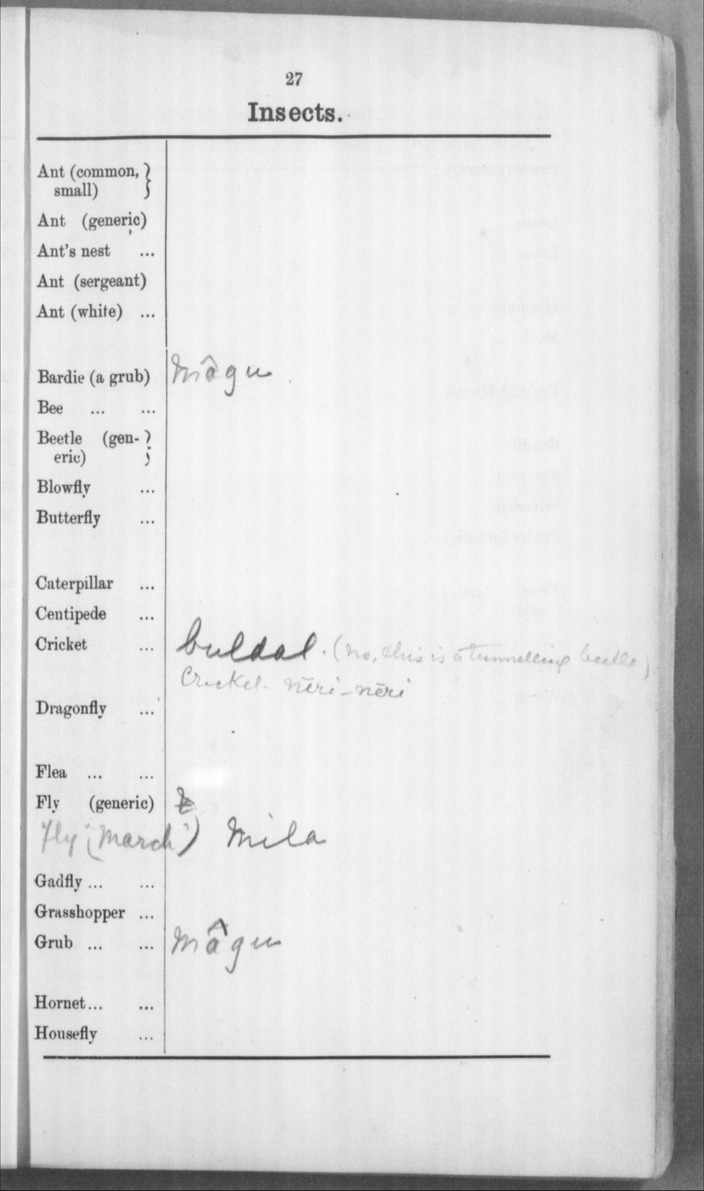 27
Insects.
Ant (common, small)
Ant (generic)
Ant's nest ...
Ant (sergeant)
Ant (white) ...
Bardie (a grub) mâgu
Bee ... ...
Beetle (generic)
Blowfly ...
Butterfly ...
Caterpillar ...
Centipede ...
Cricket ... buldal. (no, this is a tunnelling beetle)
Cricket. nēri-nēri
Dragonfly ...
Flea ... ...
Fly (generic)
Fly (March) mila
Gadfly ... ...
Grasshopper ...
Grub ... ... mâgu
Hornet ... ...
Housefly ...